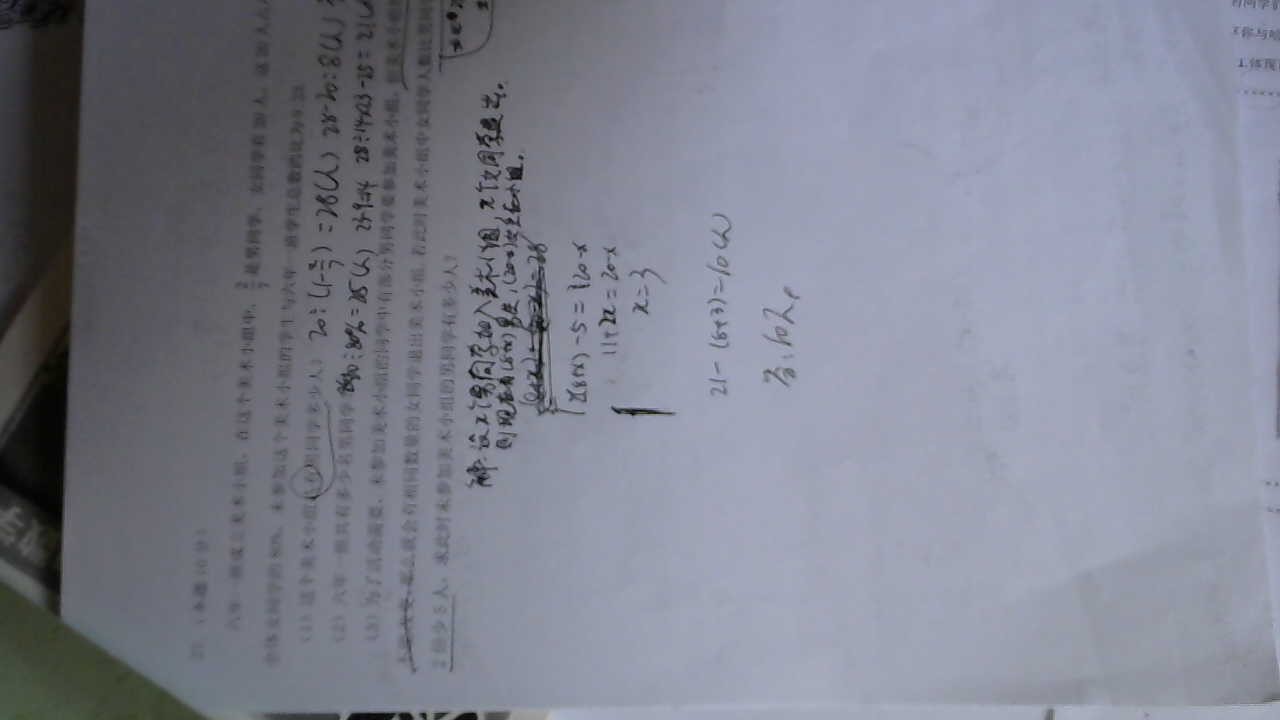 数字
27.（本题10分）
六年一班成立美术小组，在这个美术小组中，2/7是男同学，女同学有20人，这20人占
全体女同学的80%，未参加这个美术小组的学生与六年一班学生总数的比为9:23.
（1）这个美术小组共有男同学多少人？ 20÷(1-2/7)=28(人) 28-20=8(人)
（2）六年一班共有多少名男同学 20÷80%=25(人) 23-9=14 28÷14×23-25=21(人
（3）为了活动需要，未参加美术小组的同学中有部分男同学要参加美术小组，但美术小组
那么就会有相同数量的女同学退出美术小组.若此时美术小组中女同学人数比男同
2倍少5人，求此时未参加美术小组的男同学有多少人？
解:设x个男同学加入美术小组，x个女同学退出。
则现在有(8+x)男生，(20-x)女生在小组。
(8+x)+(20-x)=28
2(8+x)-5=20-x
11+2x=20-x
x=3
21-(8+3)=10(人)
答:10人。